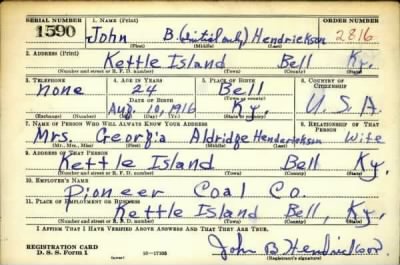 SERIAL NUMBER 1. NAME (Print) ORDER NUMBER
1590 John B.(initial only) Hendrickson 2816
(First) (Middle) (Last)
2. ADDRESS (Print)
Kettle Island Bell Ky.
(Number and street or R. F. D. number) (Town) (County) (State)
3. TELEPHONE 4. AGE IN YEARS 5. PLACE OF BIRTH 6. COUNTRY OF CITIZENSHIP
none 24 Bell
DATE OF BIRTH (Town or county)
Aug. 10, 1916 Ky. U.S.A
(Exchange) (Number) (Mo.) (Day) (Yr.) (State or country)
7. NAME OF PERSON WHO WILL ALWAYS KNOW YOUR ADDRESS 8. RELATIONSHIP OF THAT PERSON
Mrs. Georgia Aldridge Hendrickson Wife
(Mr., Mrs., Miss) (First) (Middle) (Last)
9. ADDRESS OF THAT PERSON
Kettle Island Bell Ky.
(Number and street or R. F. D. number) (Town) (County) (State)
10. EMPLOYER'S NAME
Pioneer Coal Co.
11. PLACE OF EMPLOYMENT OR BUSINESS
Kettle Island Bell, Ky.
(Number and street or R. F. D. number) (Town) (County) (State)
I AFFIRM THAT I HAVE VERIFIED ABOVE ANSWERS AND THAT THEY ARE TRUE.
REGISTRATION CARD
D. S. S. Form 1 16—17105 John B Hendrickson